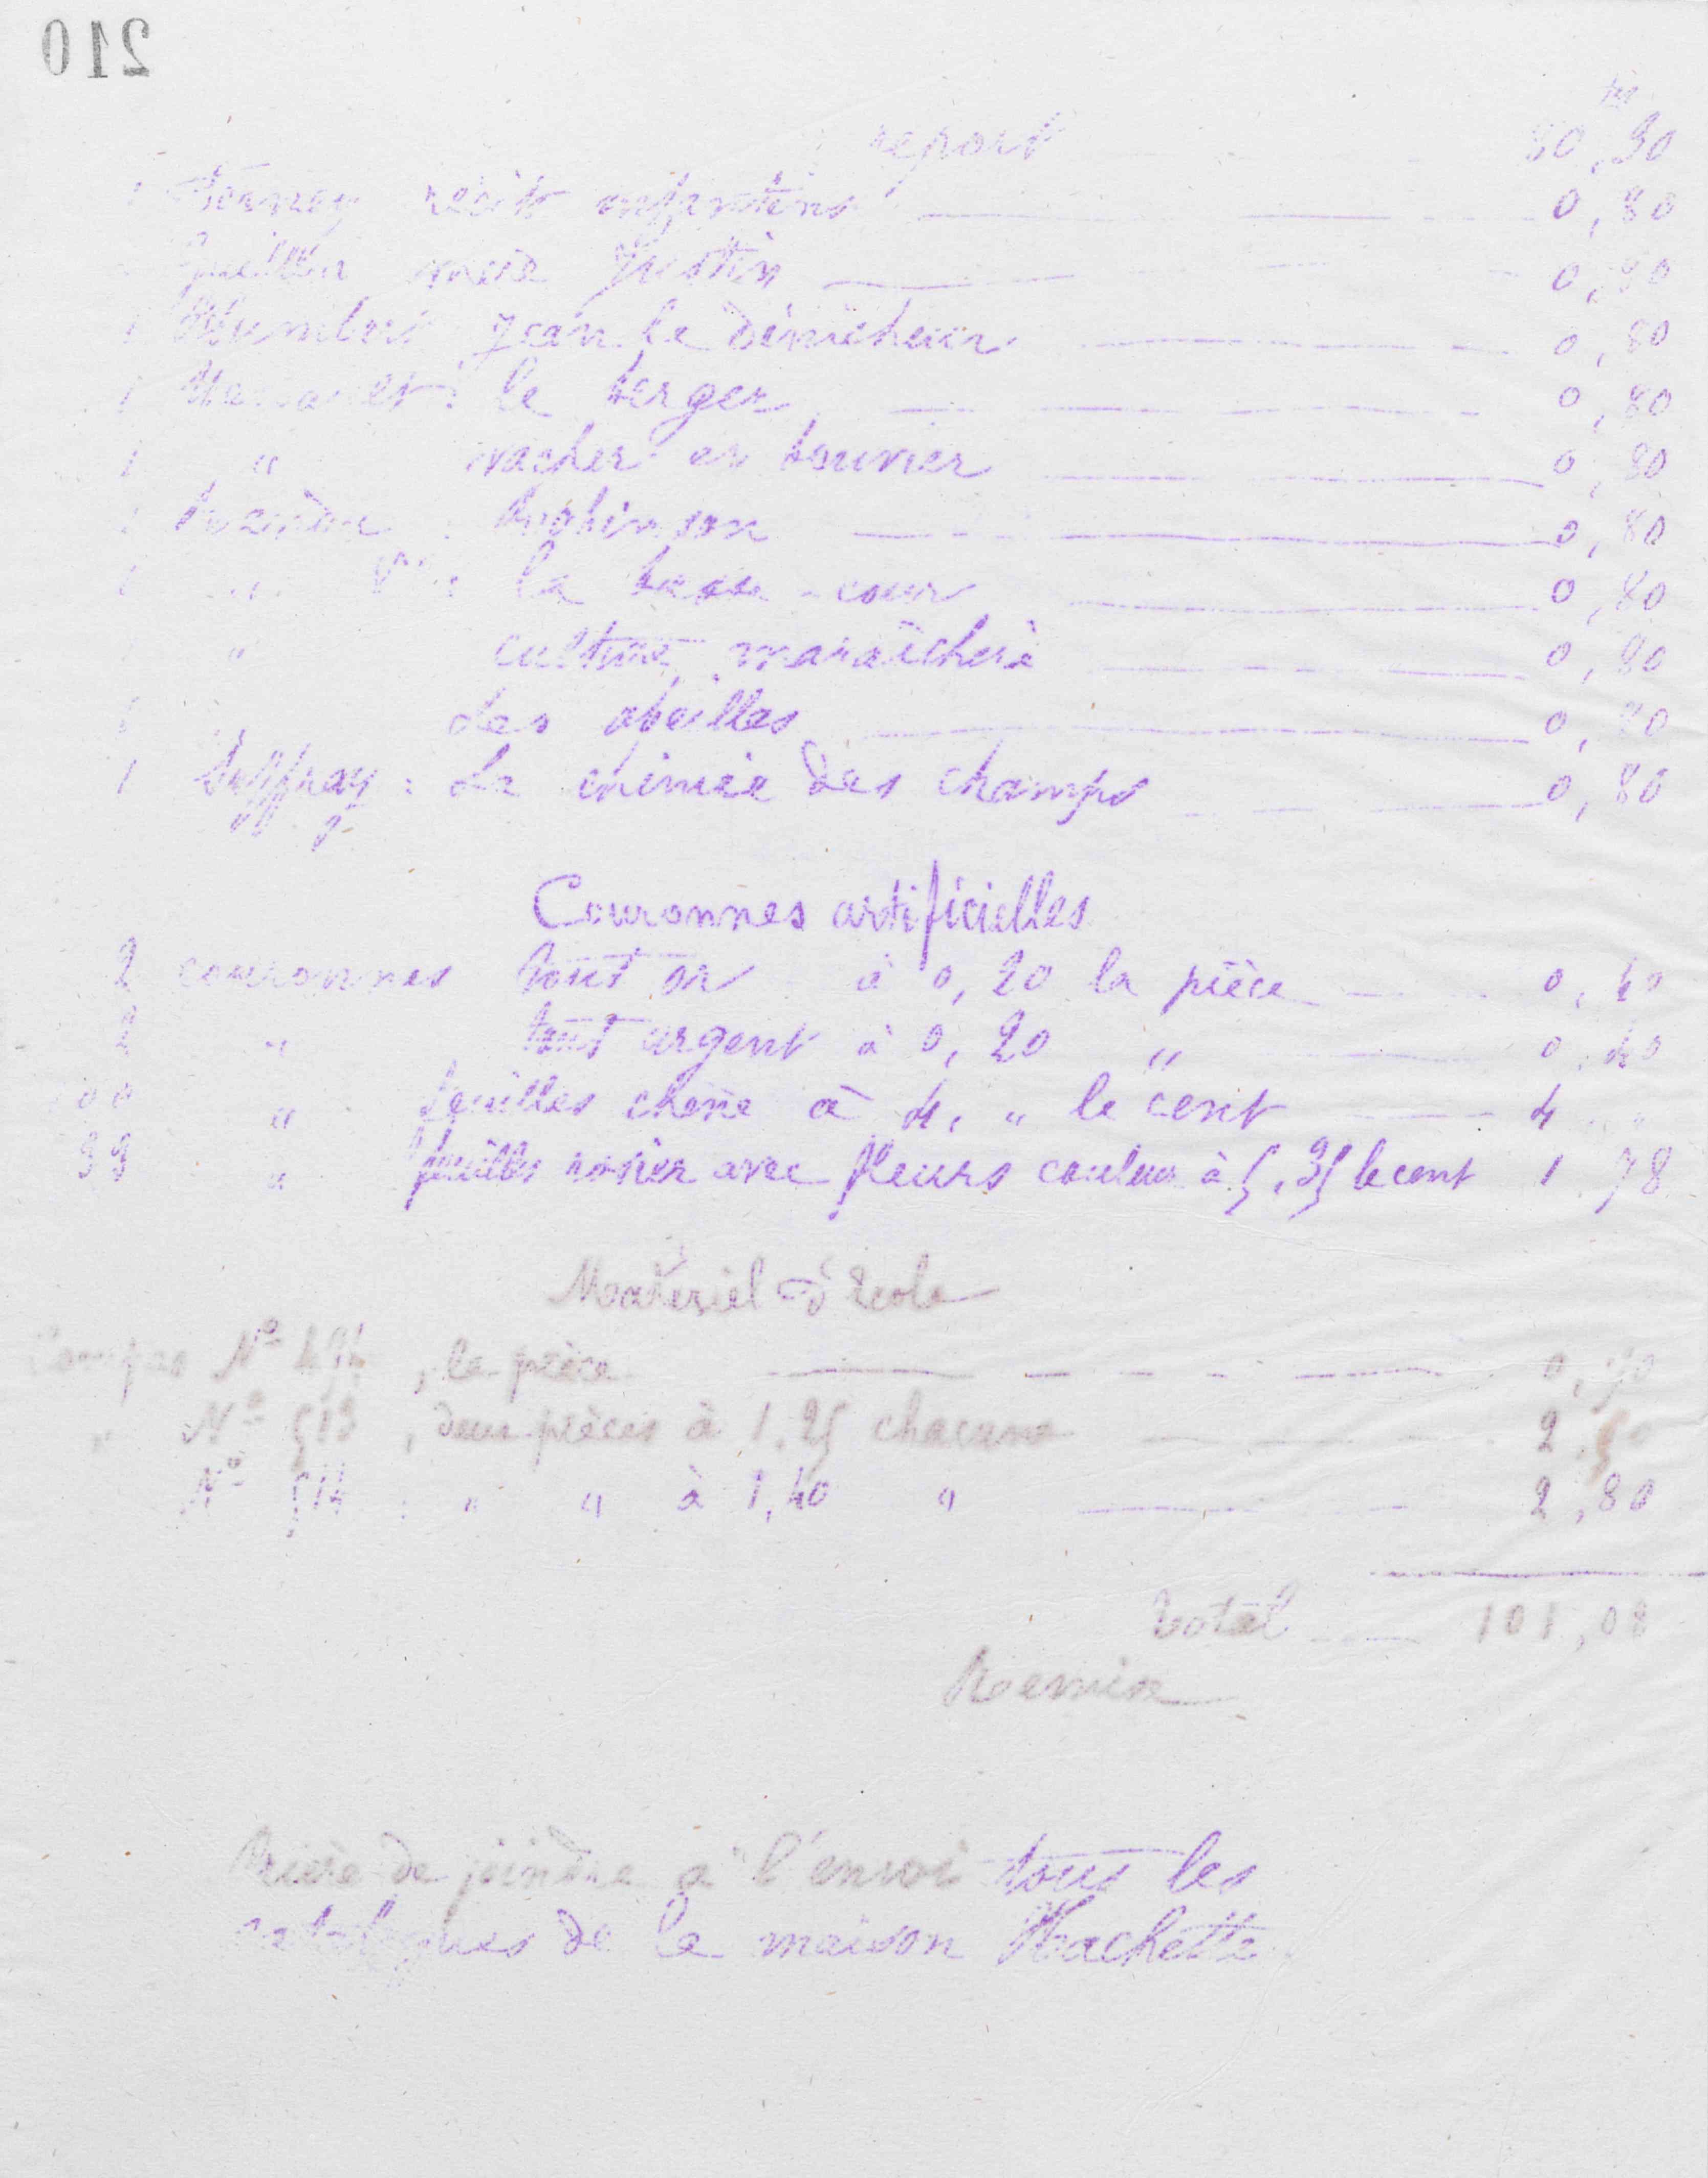 210
frs
report 80,30
1 récits enfantins 0,80
Justin 0,80
1 Humbert Jean le dénicheur 0,80
1 : le berger 0,80
1 " vacher et bouvier 0,80
1 : Robinson 0,80
1 " : la basse-cour 0,80
" culture maraîchère 0,80
1 Les abeilles 0,80
1 : La chimie des champs 0,80
Couronnes artificielles
2 couronnes tout or à 0,20 la pièce 0,40
2 " tout argent à 0,20 " 0,40
100 " feuilles chêne à 4, " le cent 4 "
33 " feuilles rosier avec fleurs couleur à 5,35 le cent 1,78
Matériel d'école
Compas No 494, la pièce 0,90
" No 513, deux pièces à 1,25 chacune 2,50
No 514 : " " à 1,40 " 2,80
Total 101,08
Remise
Prière de joindre à l'envoi tous les
catalogues de la maison Hachette.